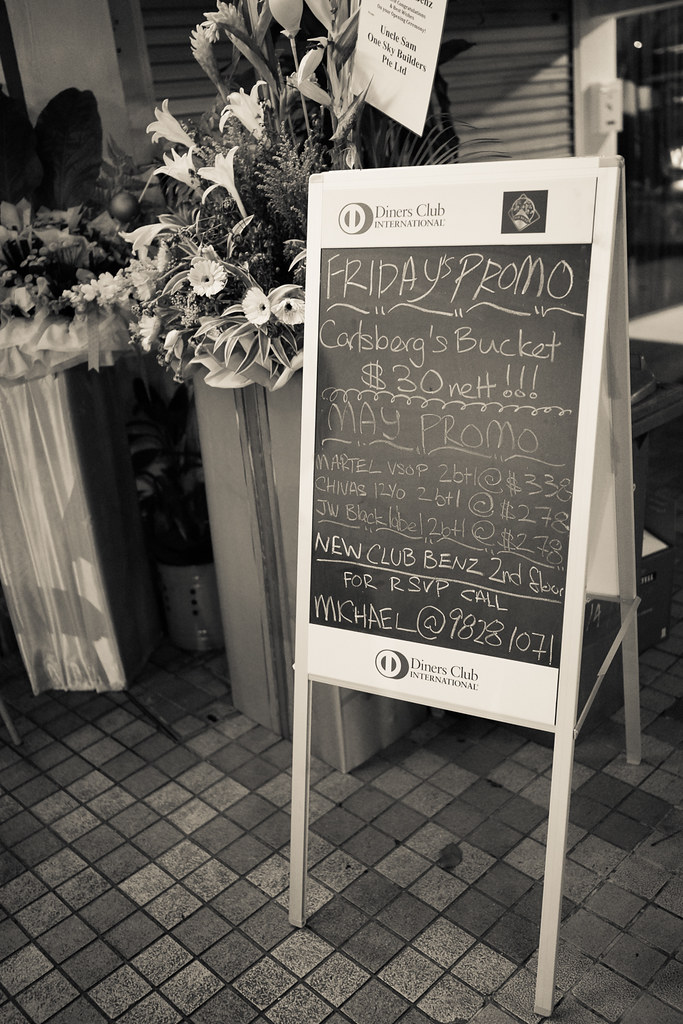 enz
Congratulations
& Best Wishes
for your Opening Ceremony!
Uncle Sam
One Sky Builders
Pte Ltd
Diners Club
INTERNATIONAL
FRIDAY'S PROMO
Carlsberg's Bucket
$30 nett!!!
MAY PROMO
MARTEL VSOP 2btl @ $338
CHIVAS 12YO 2btl @ $278
JW Black label 2btl @ $278
NEW CLUB BENZ 2nd floor
FOR RSVP CALL
MICHAEL @ 98281071
Diners Club
INTERNATIONAL